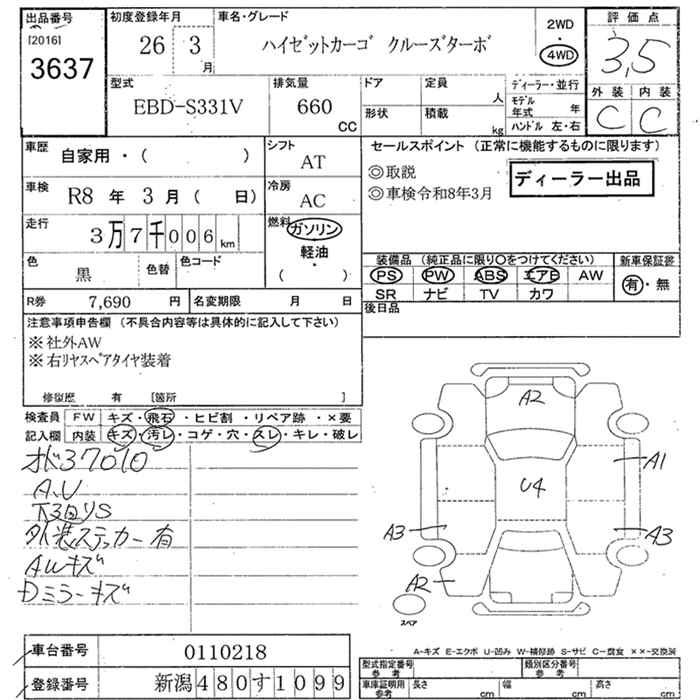 出品番号
[2016]
3637
初度登録年月
26 3 月
車名・グレード
ハイゼットカーゴ クルーズターボ
2WD
・
4WD
評価点
3,5
外装 内装
C C
型式
EBD-S331V
排気量
660 CC
ドア
形状
定員 人
積載 kg
ディーラー・並行
モデル年式 年
ハンドル 左・右
車歴 自家用・( )
シフト AT
車検 R8 年 3 月 ( 日)
冷房 AC
走行 3万7千006km
燃料 ガソリン
軽油・
( )
色 黒 色替 色コード
R券 7,690 円 名変期限 月 日
セールスポイント (正常に機能するものに限ります)
◎取説
◎車検令和8年3月
ディーラー出品
装備品 (純正品に限り○をつけてください) 新車保証書
PS PW ABS エアB AW 有・無
SR ナビ TV カワ
後日品
注意事項申告欄 (不具合内容等は具体的に記入して下さい)
※社外AW
※右リヤスペアタイヤ装着
修復歴 有 [箇所 ]
検査員 FW キズ・飛石・ヒビ割・リペア跡・×要
記入欄 内装 キズ・汚レ・コゲ・穴・スレ・キレ・破レ
37010
A.U
下3回りS
外装ステッカー有
AWキズ
Dミラーキズ
A2
A1
U4
A3
A3
A2
スペア
A-キズ E-エクボ U-凹み W-補修跡 S-サビ C-腐食 ××-交換済
車台番号 0110218
登録番号 新潟480す1099
型式指定番号 参考
類別区分番号 参考
車庫証明用 参考 長さ cm 幅 cm 高さ cm